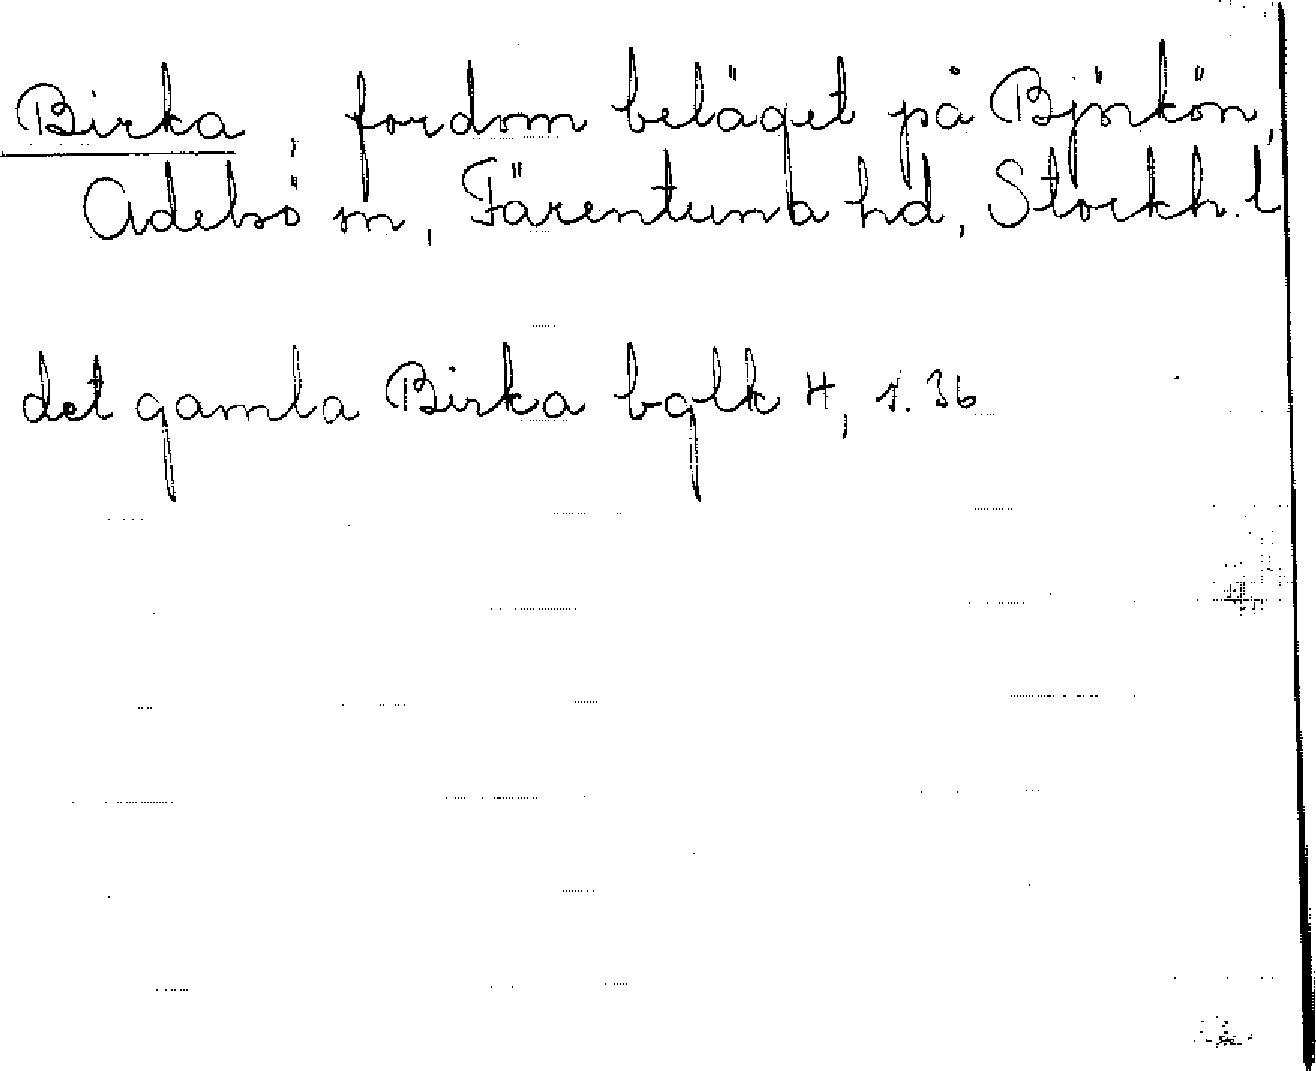 Birka, fordom beläget på Björkön,
Adelsö sn, Färentuna hd, Stockh. l
det gamla Birka bglk H, s. 36